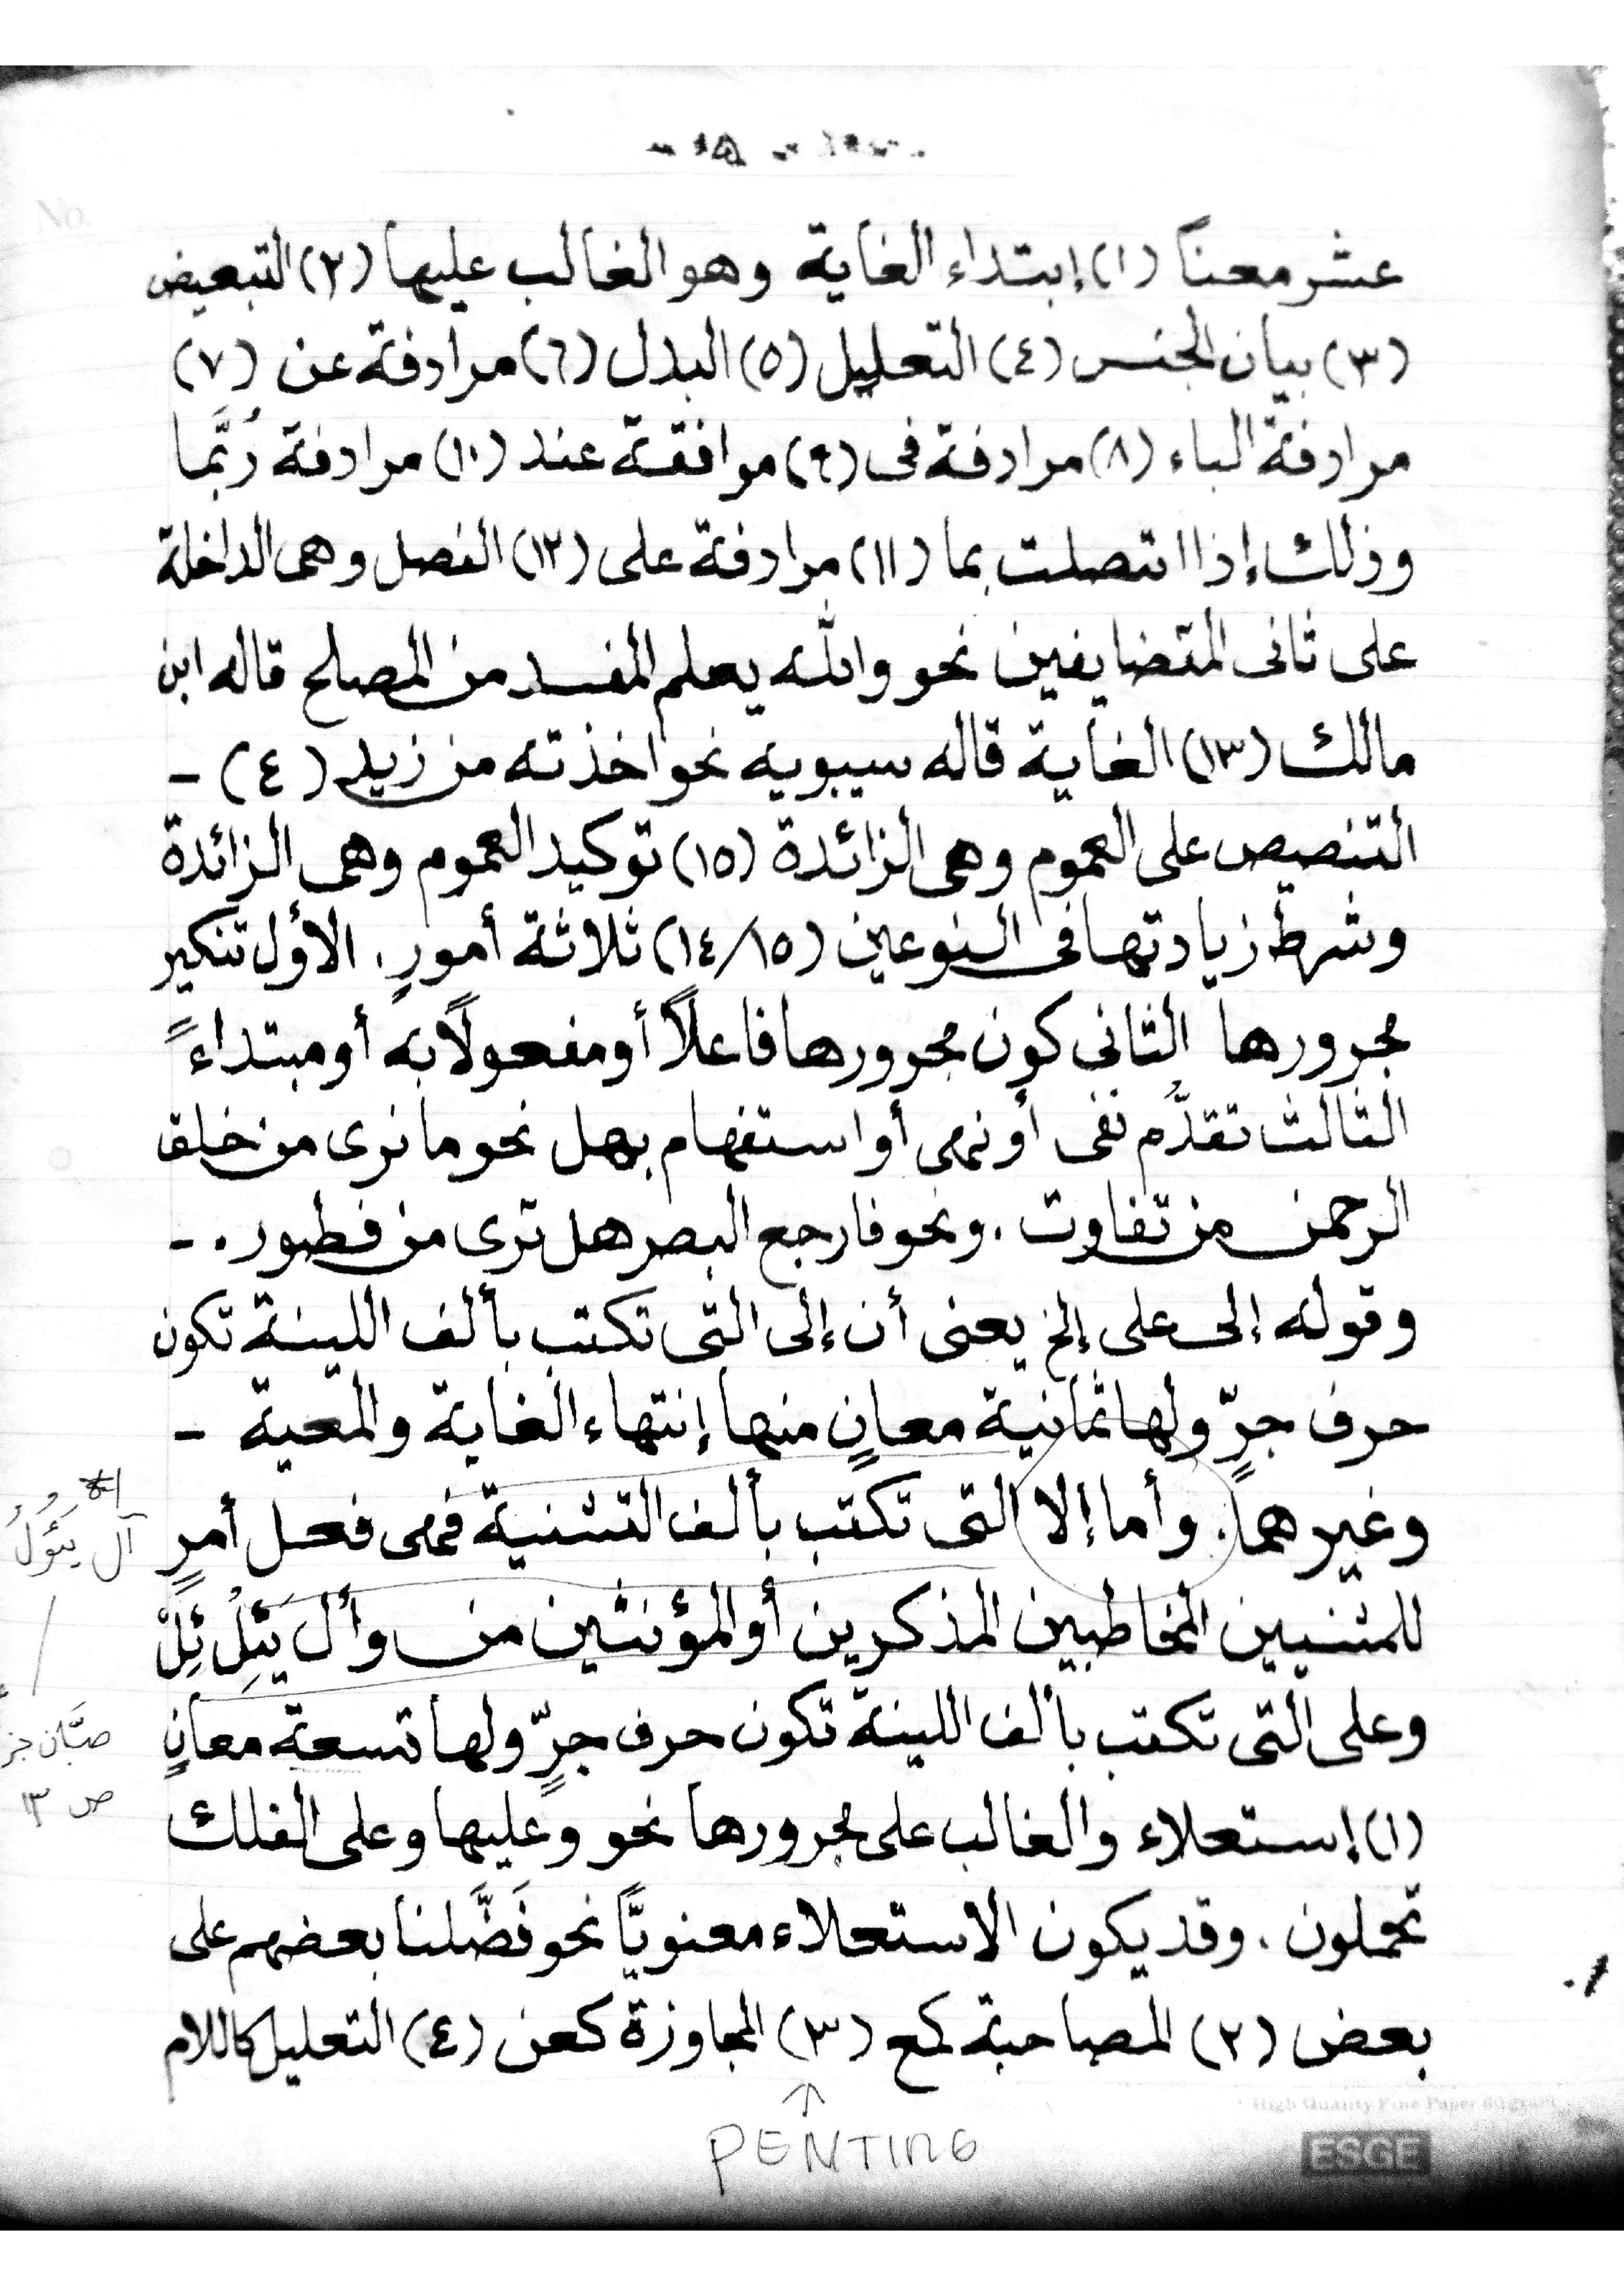 عشر معناً (١) إبتداء الغاية وهو الغالب عليها (٢) التبعيض
(٣) بيان الجنس (٤) التعليل (٥) البدل (٦) مرادفة عن (٧)
مرادفة الباء (٨) مرادفة فى (٩) موافقة عند (١٠) مرادفة رُبَّما
وذلك إذا اتصلت بما (١١) مرادفة على (١٢) الفصل وهى الداخلة
على ثانى المتضايفين نحو والله يعلم المفسد من المصلح قاله ابن
مالك (١٣) الغاية قاله سيبويه نحو اخذته من زيد (٤) -
التنصيص على العموم وهى الزائدة (١٥) توكيد العموم وهى الزائدة
وشرط زيادتها فى النوعين (١٤/١٥) ثلاثة أمورٍ. الأول تنكير
مجرورها الثانى كون مجرورها فاعلاً أو مفعولاً به أو مبتداءً
الثالث تقدُّم نفى أو نهى أو استفهام بهل نحو ما ترى من خلق
الرحمن من تفاوت. ونحو فارجع البصر هل ترى من فطور. -
وقوله إلى على إلخ يعنى أن إلى التى تكتب بألف اللينة تكون
حرف جرّ ولها ثمانية معانٍ منها إنتهاء الغاية والمعية -
وغيرهما. وأما إلا التى تكتب بألف التثنية فهى فعل أمرٍ
للمثنيين المخاطبين المذكرين أو المؤنثين من وأل يَئِلُ ئِلْ
وعلى التى تكتب بألف اللينة تكون حرف جرٍّ ولها تسعة معانٍ
(١) إستعلاء والغالب على مجرورها نحو وعليها وعلى الفلك
تحملون. وقد يكون الاستعلاء معنويًّا نحو فَضَّلنا بعضهم على
بعض (٢) المصاحبة كمع (٣) المجاوزة كعن (٤) التعليل كاللام
آل يَئُوْلُ
صبَّان جز
ص ١٣
PENTING
High Quality Fine Paper 60gram
ESGE
No.